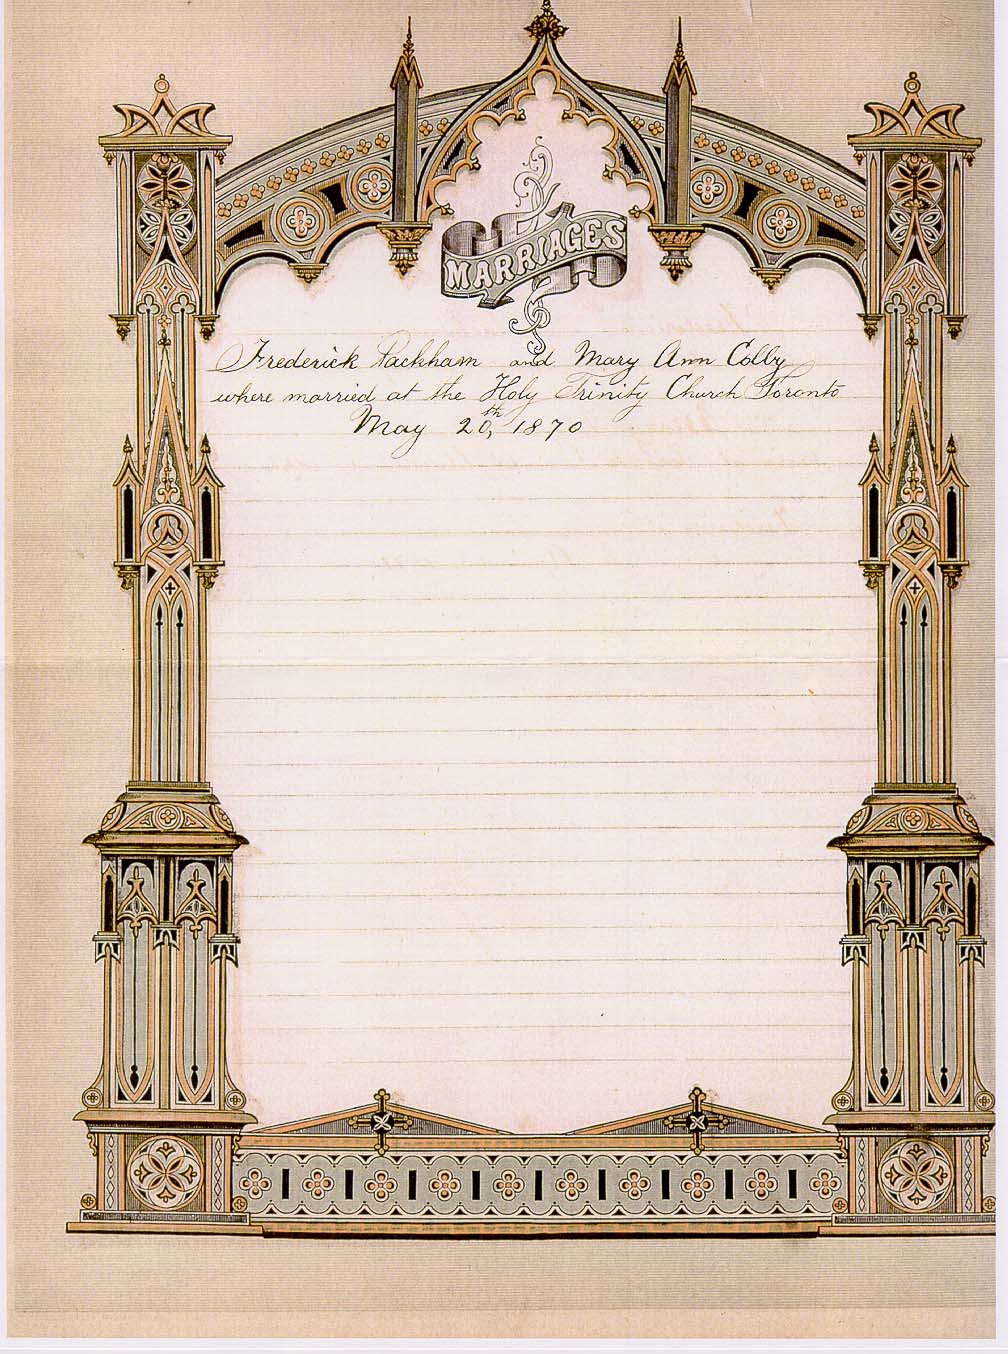 MARRIAGES
Frederick Packham and Mary Ann Colby
where married at the Holy Trinity Church Toronto
May 20th, 1870